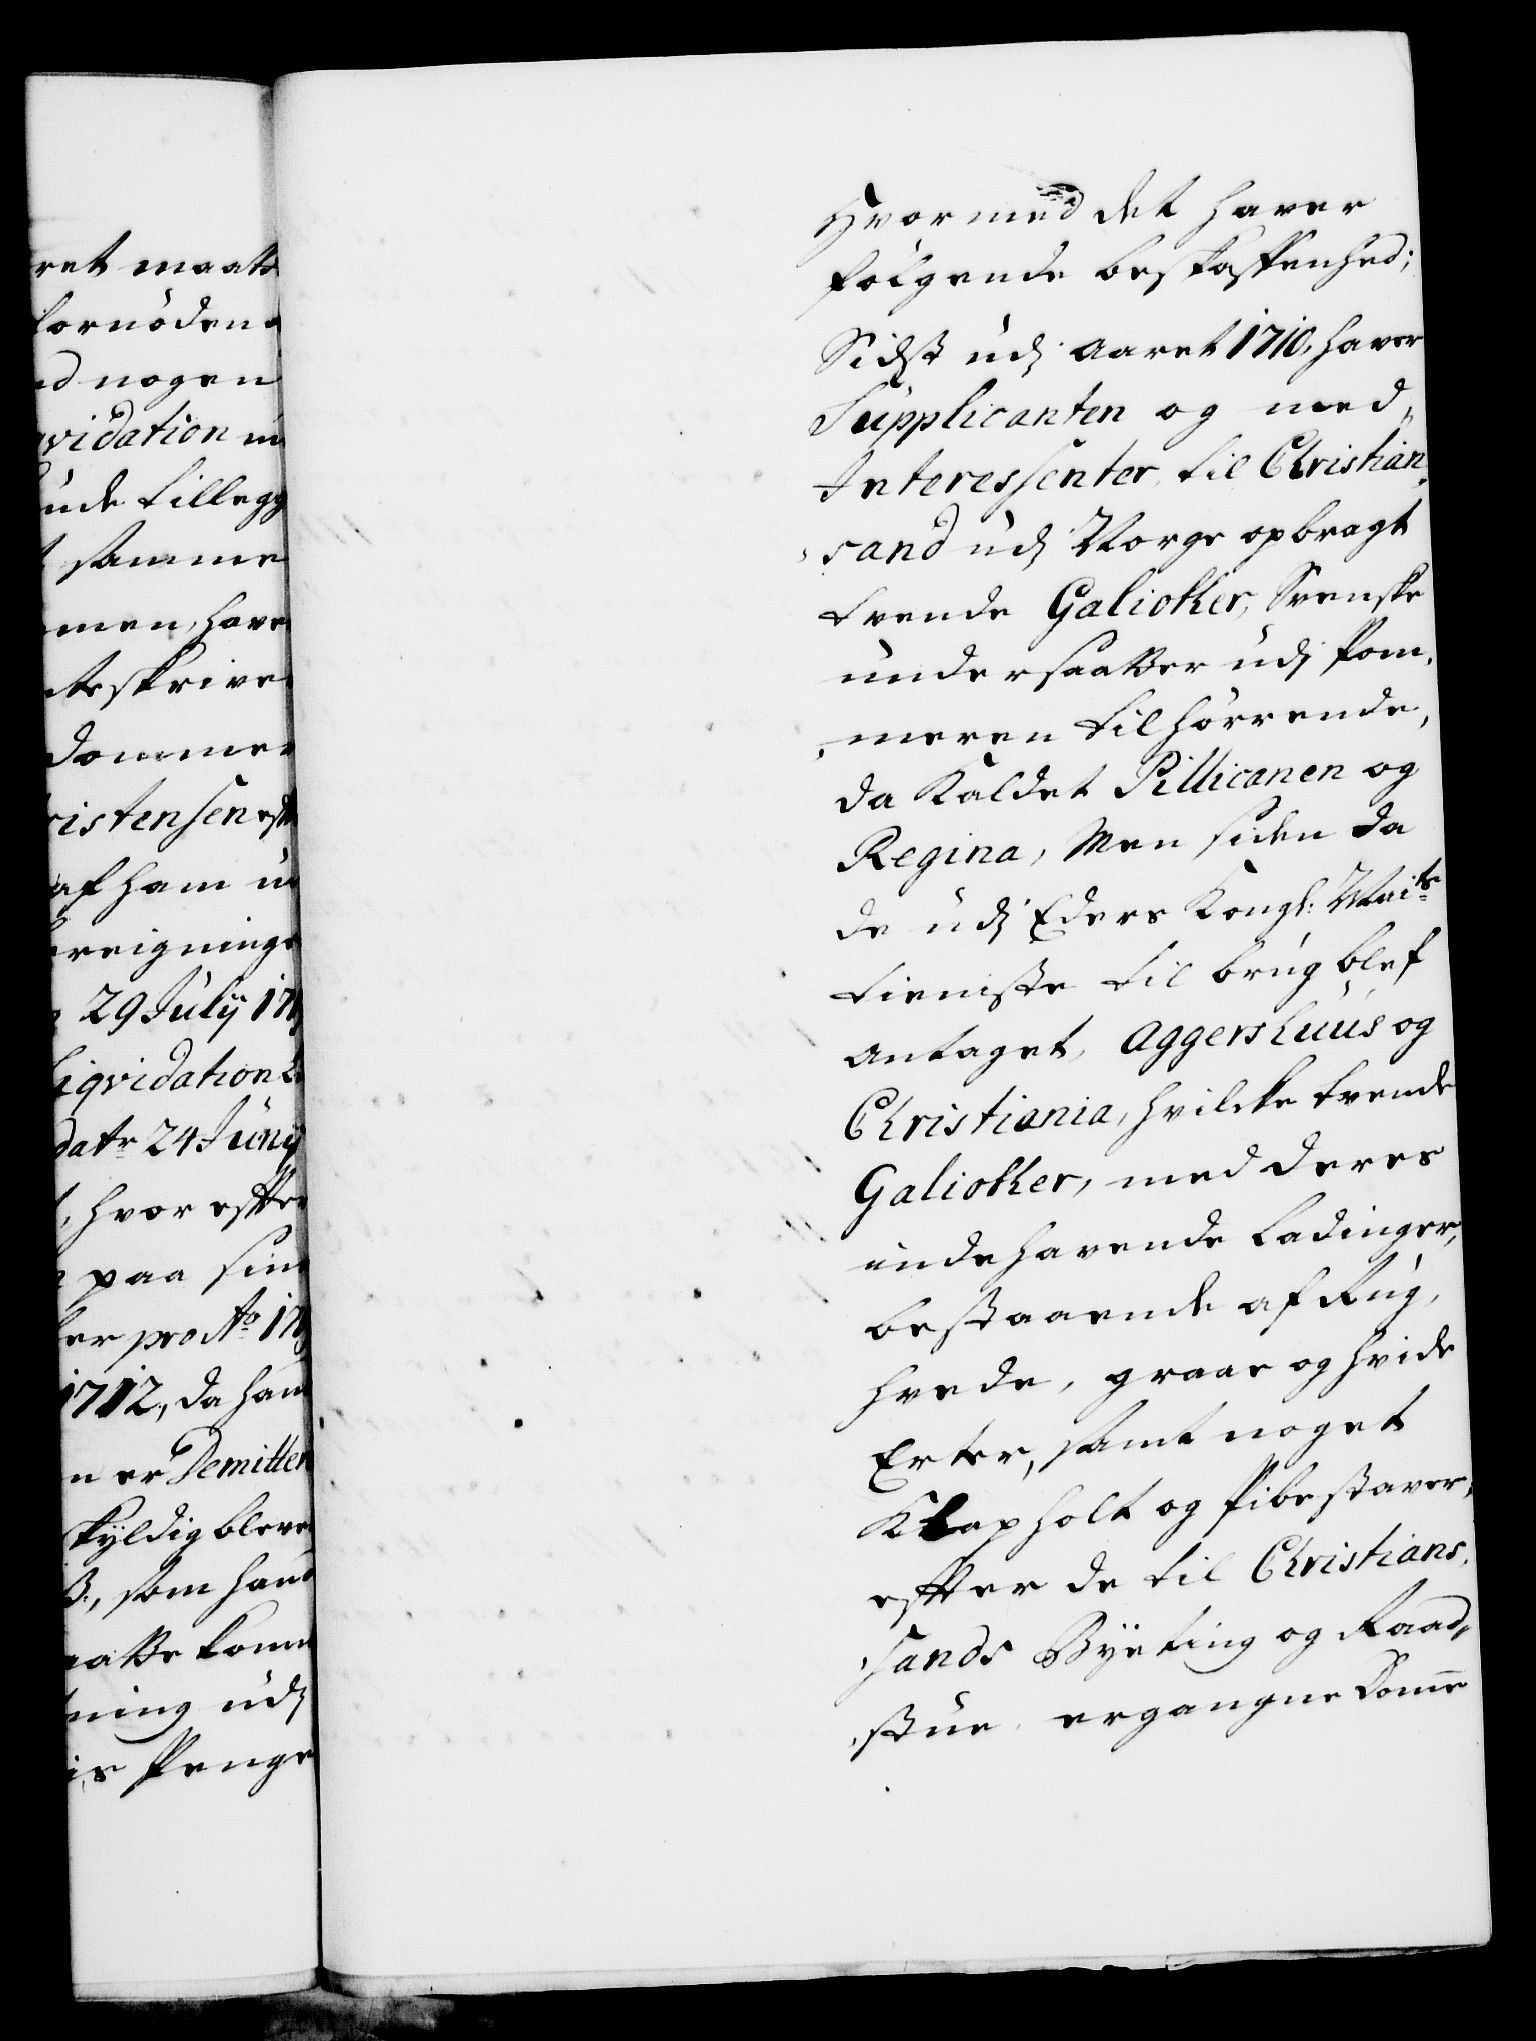 ret maatte
fornöden
d nogen
qvidation in
ude tillegg
samme
men, have
ateskrive
dommer
ristensen eft
af ham u
ereignings
29 Julÿ 171
Liqvidation
dat: 24 Junÿ
hvor effter
paa sin
er pro Ao 171
1712, da ham
n er Demitter
skyldig bleve
ß., som hand
aatte komm
ning udj
is Penge
Hvormed det haver
folgende beskaffenhed;
Sidst udj Aaret 1710, haver
Supplicanten og med„
Interessenter, til Christian,
,sand udj Norge opbragt
tvende Galiother, Svenske
undersaatter udj Pom,
,meren tilhörrende,
da kaldet Pillicanen og
Regina, Men siden da
de udj Eders Kongl: Maits
tieniste til brug blef
antaget, Aggershuus og
Christiania, hvilcke tvende
Galiother, med deres
indehavende Ladinger,
bestaaende af Rug,
hvede, graae og hvide
Erter, samt noget
Klapholt og Pibestaver,
effter de til Christians,
,sands Bÿeting og Raad„
,stue ergangne Domme